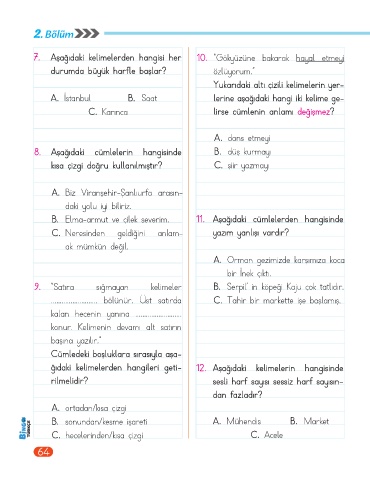 2. Bölüm
7. Aşağıdaki kelimelerden hangisi her
durumda büyük harfle başlar?
A. İstanbul B. Saat
C. Karınca
8. Aşağıdaki cümlelerin hangisinde
kısa çizgi doğru kullanılmıştır?
A. Biz Viranşehir-Şanlıurfa arasın-
daki yolu iyi biliriz.
B. Elma-armut ve çilek severim.
C. Neresinden geldiğini anlam-
ak mümkün değil.
9. "Satıra sığmayan kelimeler
........................ bölünür. Üst satırda
kalan hecenin yanına ........................
konur. Kelimenin devamı alt satırın
başına yazılır."
Cümledeki boşluklara sırasıyla aşa-
ğıdaki kelimelerden hangileri geti-
rilmelidir?
A. ortadan/kısa çizgi
B. sonundan/kesme işareti
C. hecelerinden/kısa çizgi
10. "Gökyüzüne bakarak hayal etmeyi
özlüyorum."
Yukarıdaki altı çizili kelimelerin yer-
lerine aşağıdaki hangi iki kelime ge-
lirse cümlenin anlamı değişmez?
A. dans etmeyi
B. düş kurmayı
C. şiir yazmayı
11. Aşağıdaki cümlelerden hangisinde
yazım yanlışı vardır?
A. Orman gezimizde karşımıza koca
bir İnek çıktı.
B. Serpil' in köpeği Kaju çok tatlıdır.
C. Tahir bir markette işe başlamış.
12. Aşağıdaki kelimelerin hangisinde
sesli harf sayısı sessiz harf sayısın-
dan fazladır?
A. Mühendis B. Market
C. Acele
BİNGO
TÜRKÇE
64